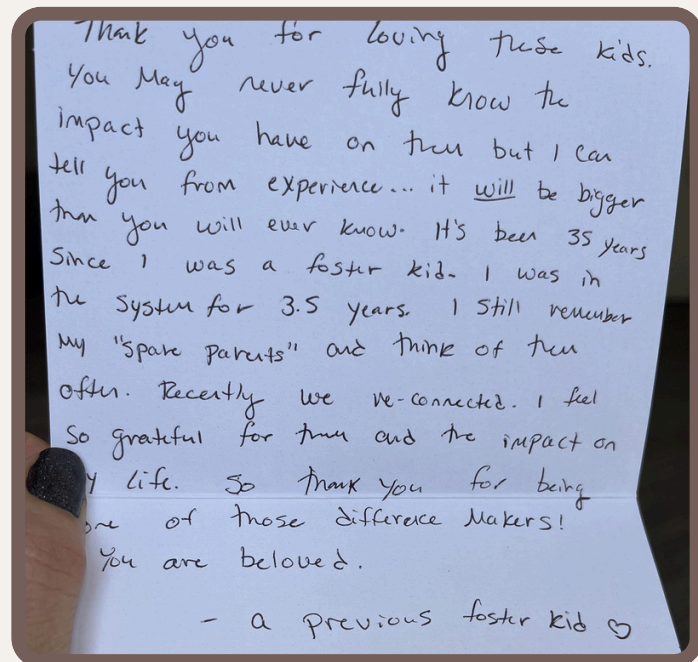 Thank you for loving these kids.
You May never fully know the
impact you have on them but I can
tell you from experience... it will be bigger
than you will ever know. It's been 35 years
Since I was a foster kid. I was in
the System for 3.5 years. I still remember
My "spare parents" and think of them
often. Recently we re-connected. I feel
So grateful for them and the impact on
y life. So thank you for being
one of those difference Makers!
You are beloved.
- a previous foster kid ♡